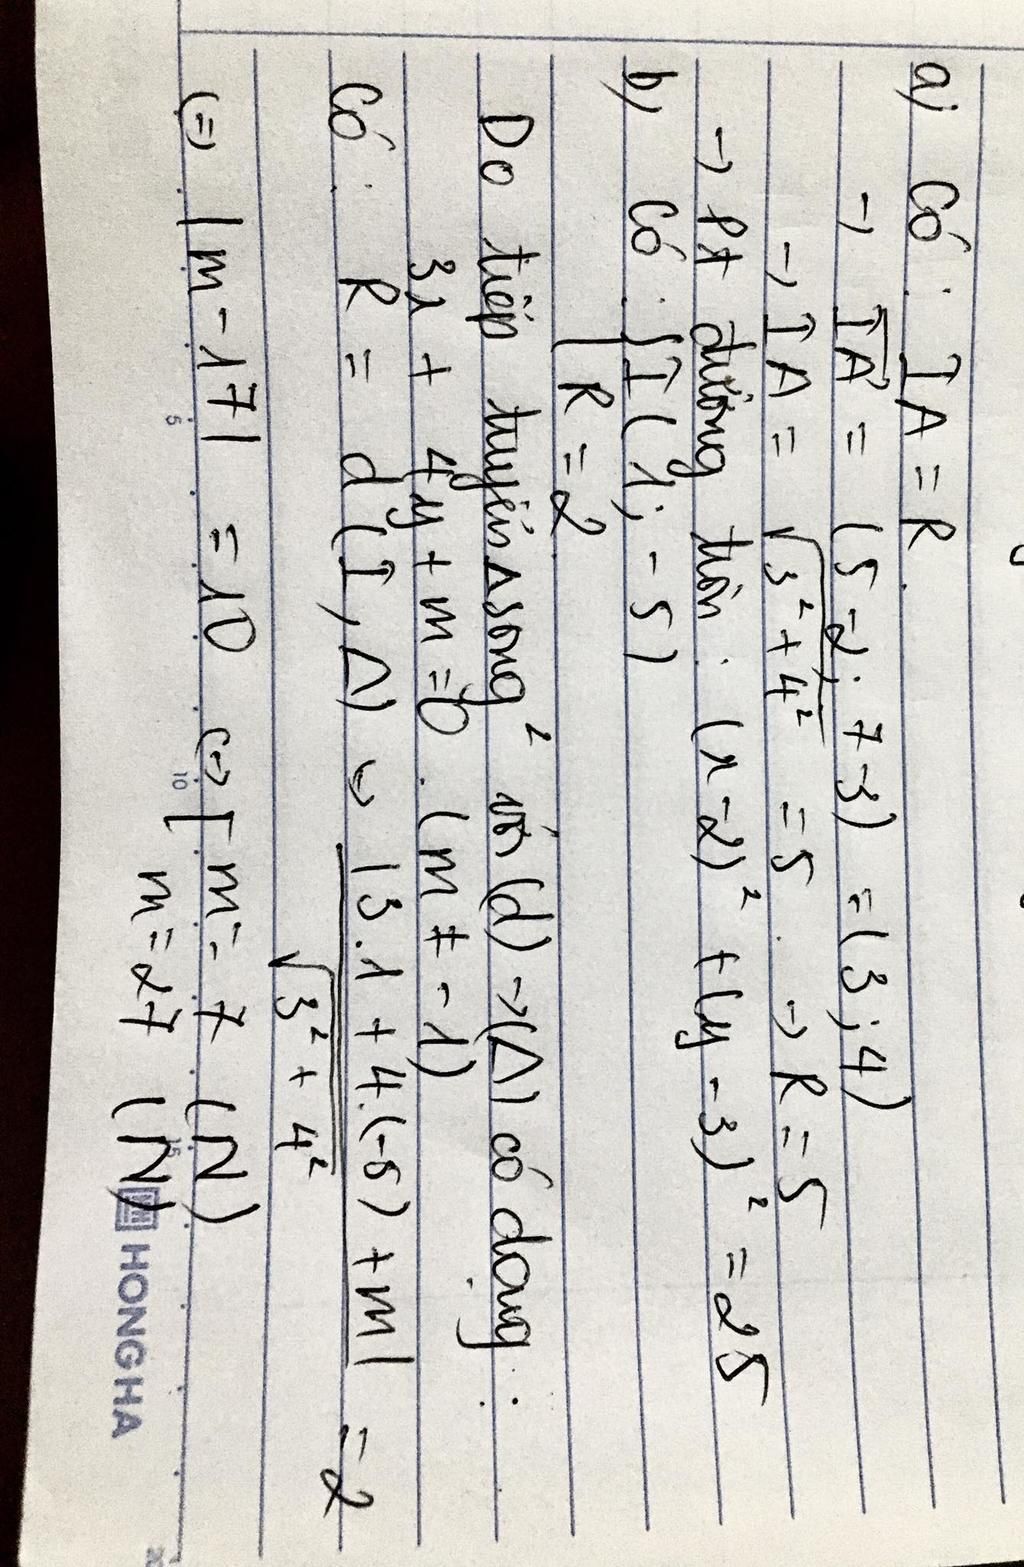 a) Có: IA = R.
→ IA = (5-2; 7-3) = (3; 4)
→ IA = √3² + 4² = 5. → R = 5
→ Pt đường tròn: (x-2)² + (y-3)² = 25
b) Có: { I (1; -5)
R = 2
Do tiếp tuyến Δ song² với (d) → (Δ) có dạng:
3x + 4y + m = 0. (m ≠ -1)
Có: R = d(I, Δ) ⇔ |3.1 + 4.(-5) + m| / √3² + 4² = 2
(=) |m - 17| = 10 (=) [ m = 7 (N)
m = 27 (N)
5 10 15 20
HONG HA